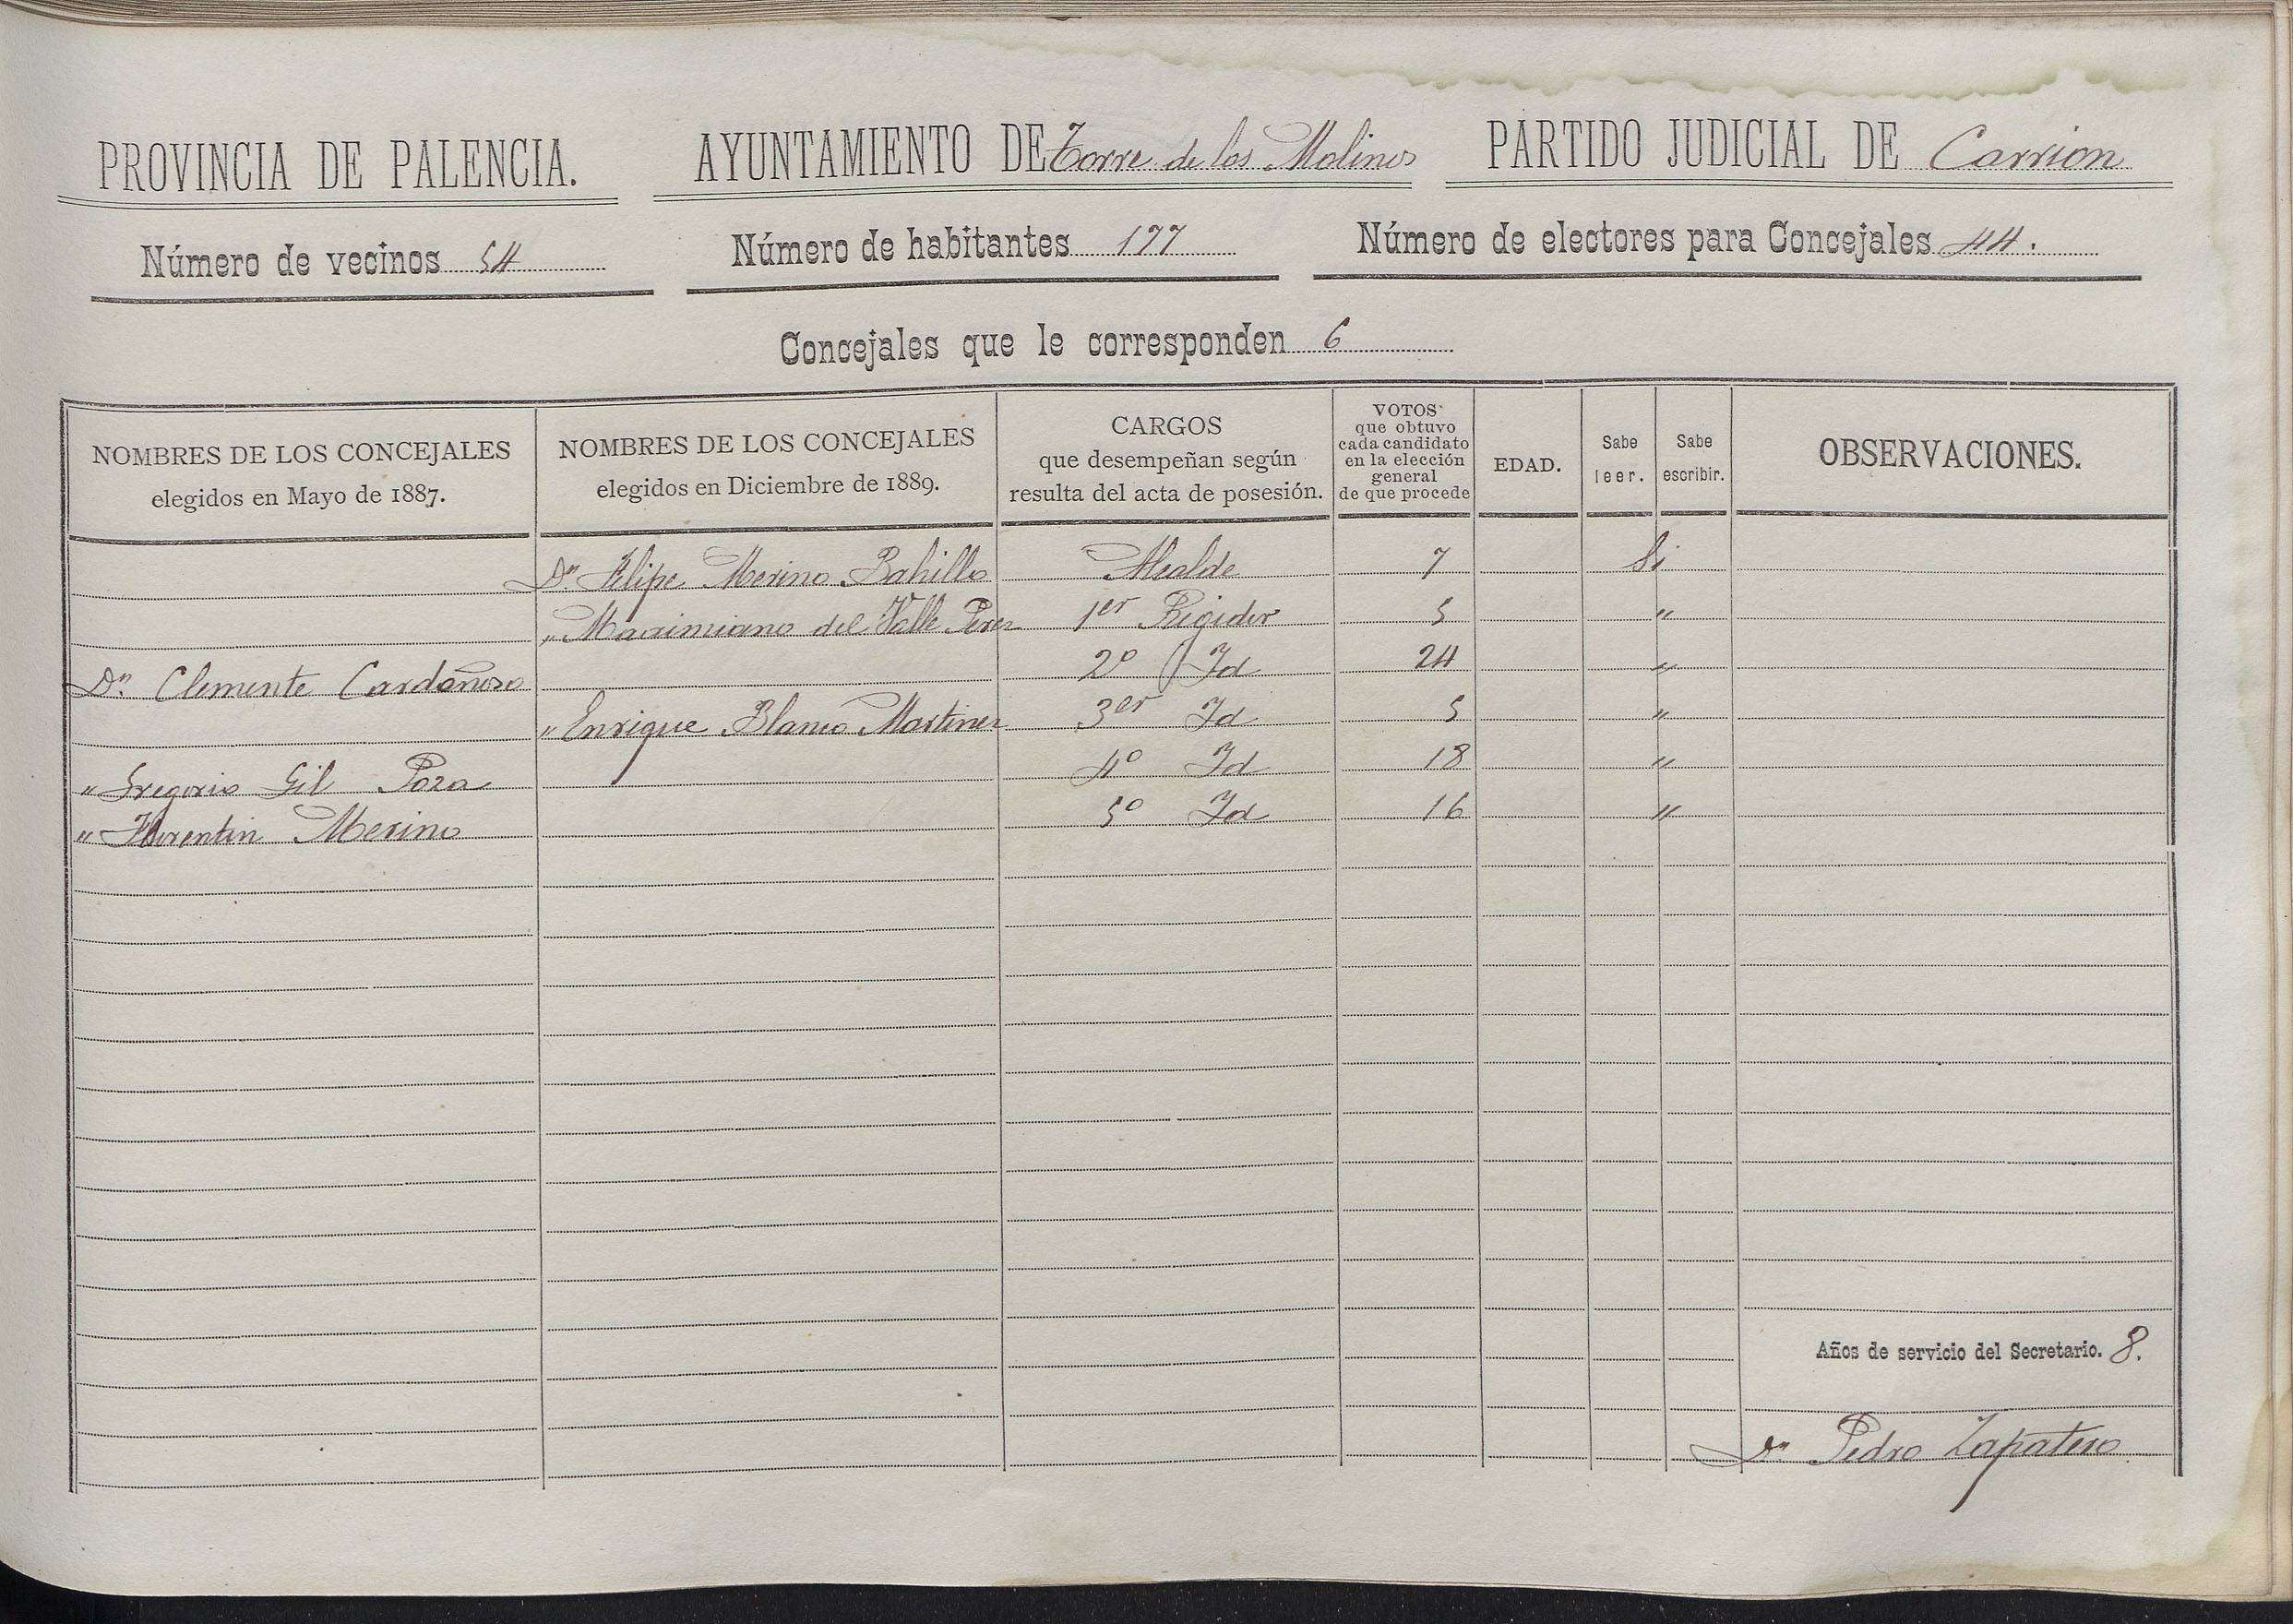 PROVINCIA DE PALENCIA. AYUNTAMIENTO DE Torre de los Molinos PARTIDO JUDICIAL DE Carrion
Número de vecinos 54 Número de habitantes 177 Número de electores para Concejales 44.
Concejales que le corresponden 6
NOMBRES DE LOS CONCEJALES
elegidos en Mayo de 1887.
NOMBRES DE LOS CONCEJALES
elegidos en Diciembre de 1889.
CARGOS
que desempeñan según
resulta del acta de posesión.
VOTOS
que obtuvo
cada candidato
en la elección
general
de que procede
EDAD.
Sabe
leer.
Sabe
escribir.
OBSERVACIONES.
Dn. Felipe Merino Bahillo Alcalde 7 Si
" Maximiano del Valle Perez 1er Rigidor 5 "
Dn. Clemente Cardeñoso 2º Id 24 "
" Enrique Blanco Martinez 3er Id 5 "
" Gregorio Gil Poza 4º Id 18 "
" Florentin Merino 5º Id 16 "
Años de servicio del Secretario. 8.
Dn Pedro Zapatero